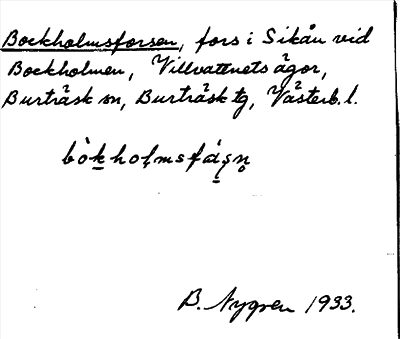 Bockholmsforsen, fors i Sikån vid
Bockholmen, Villvattnets ägor,
Burträsk sn, Burträsk tg, Västerb. l.
B. Nygren 1933.